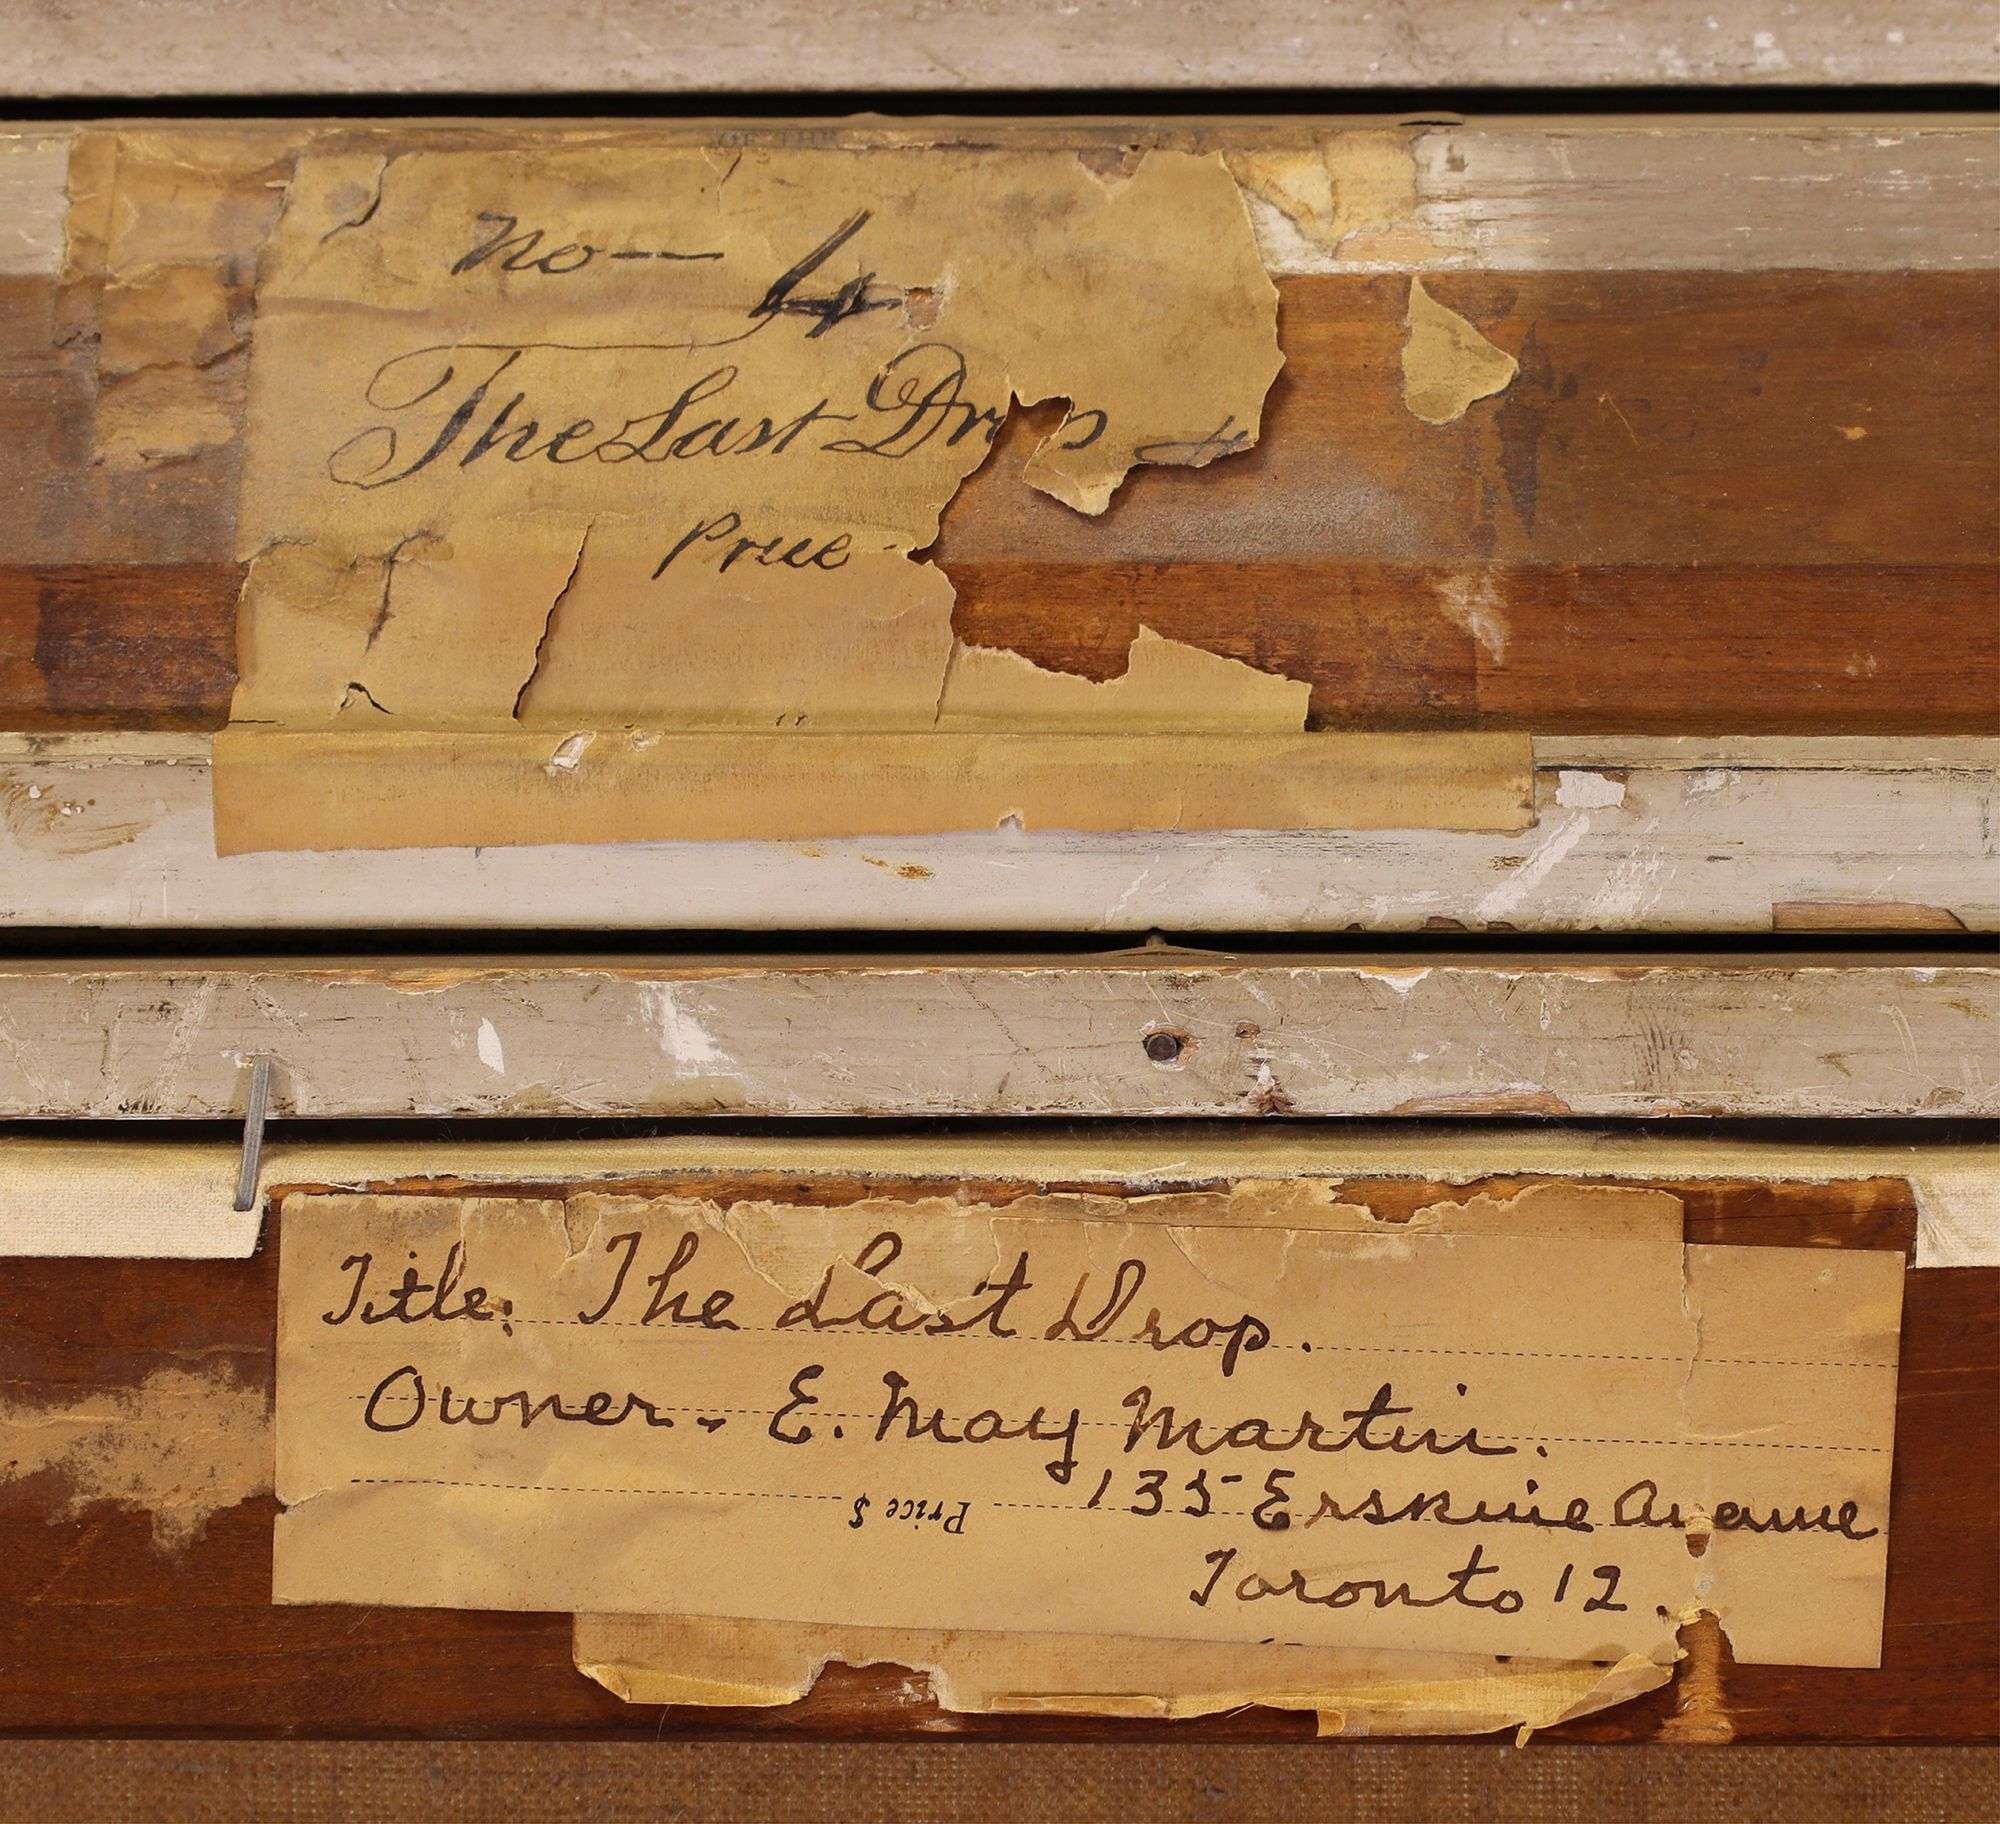 OF THE
No — 4
The Last Drop
Price -
Title: The Last Drop.
Owner - E. May Martin.
135 Erskine Avenue
Price $
Toronto 12.